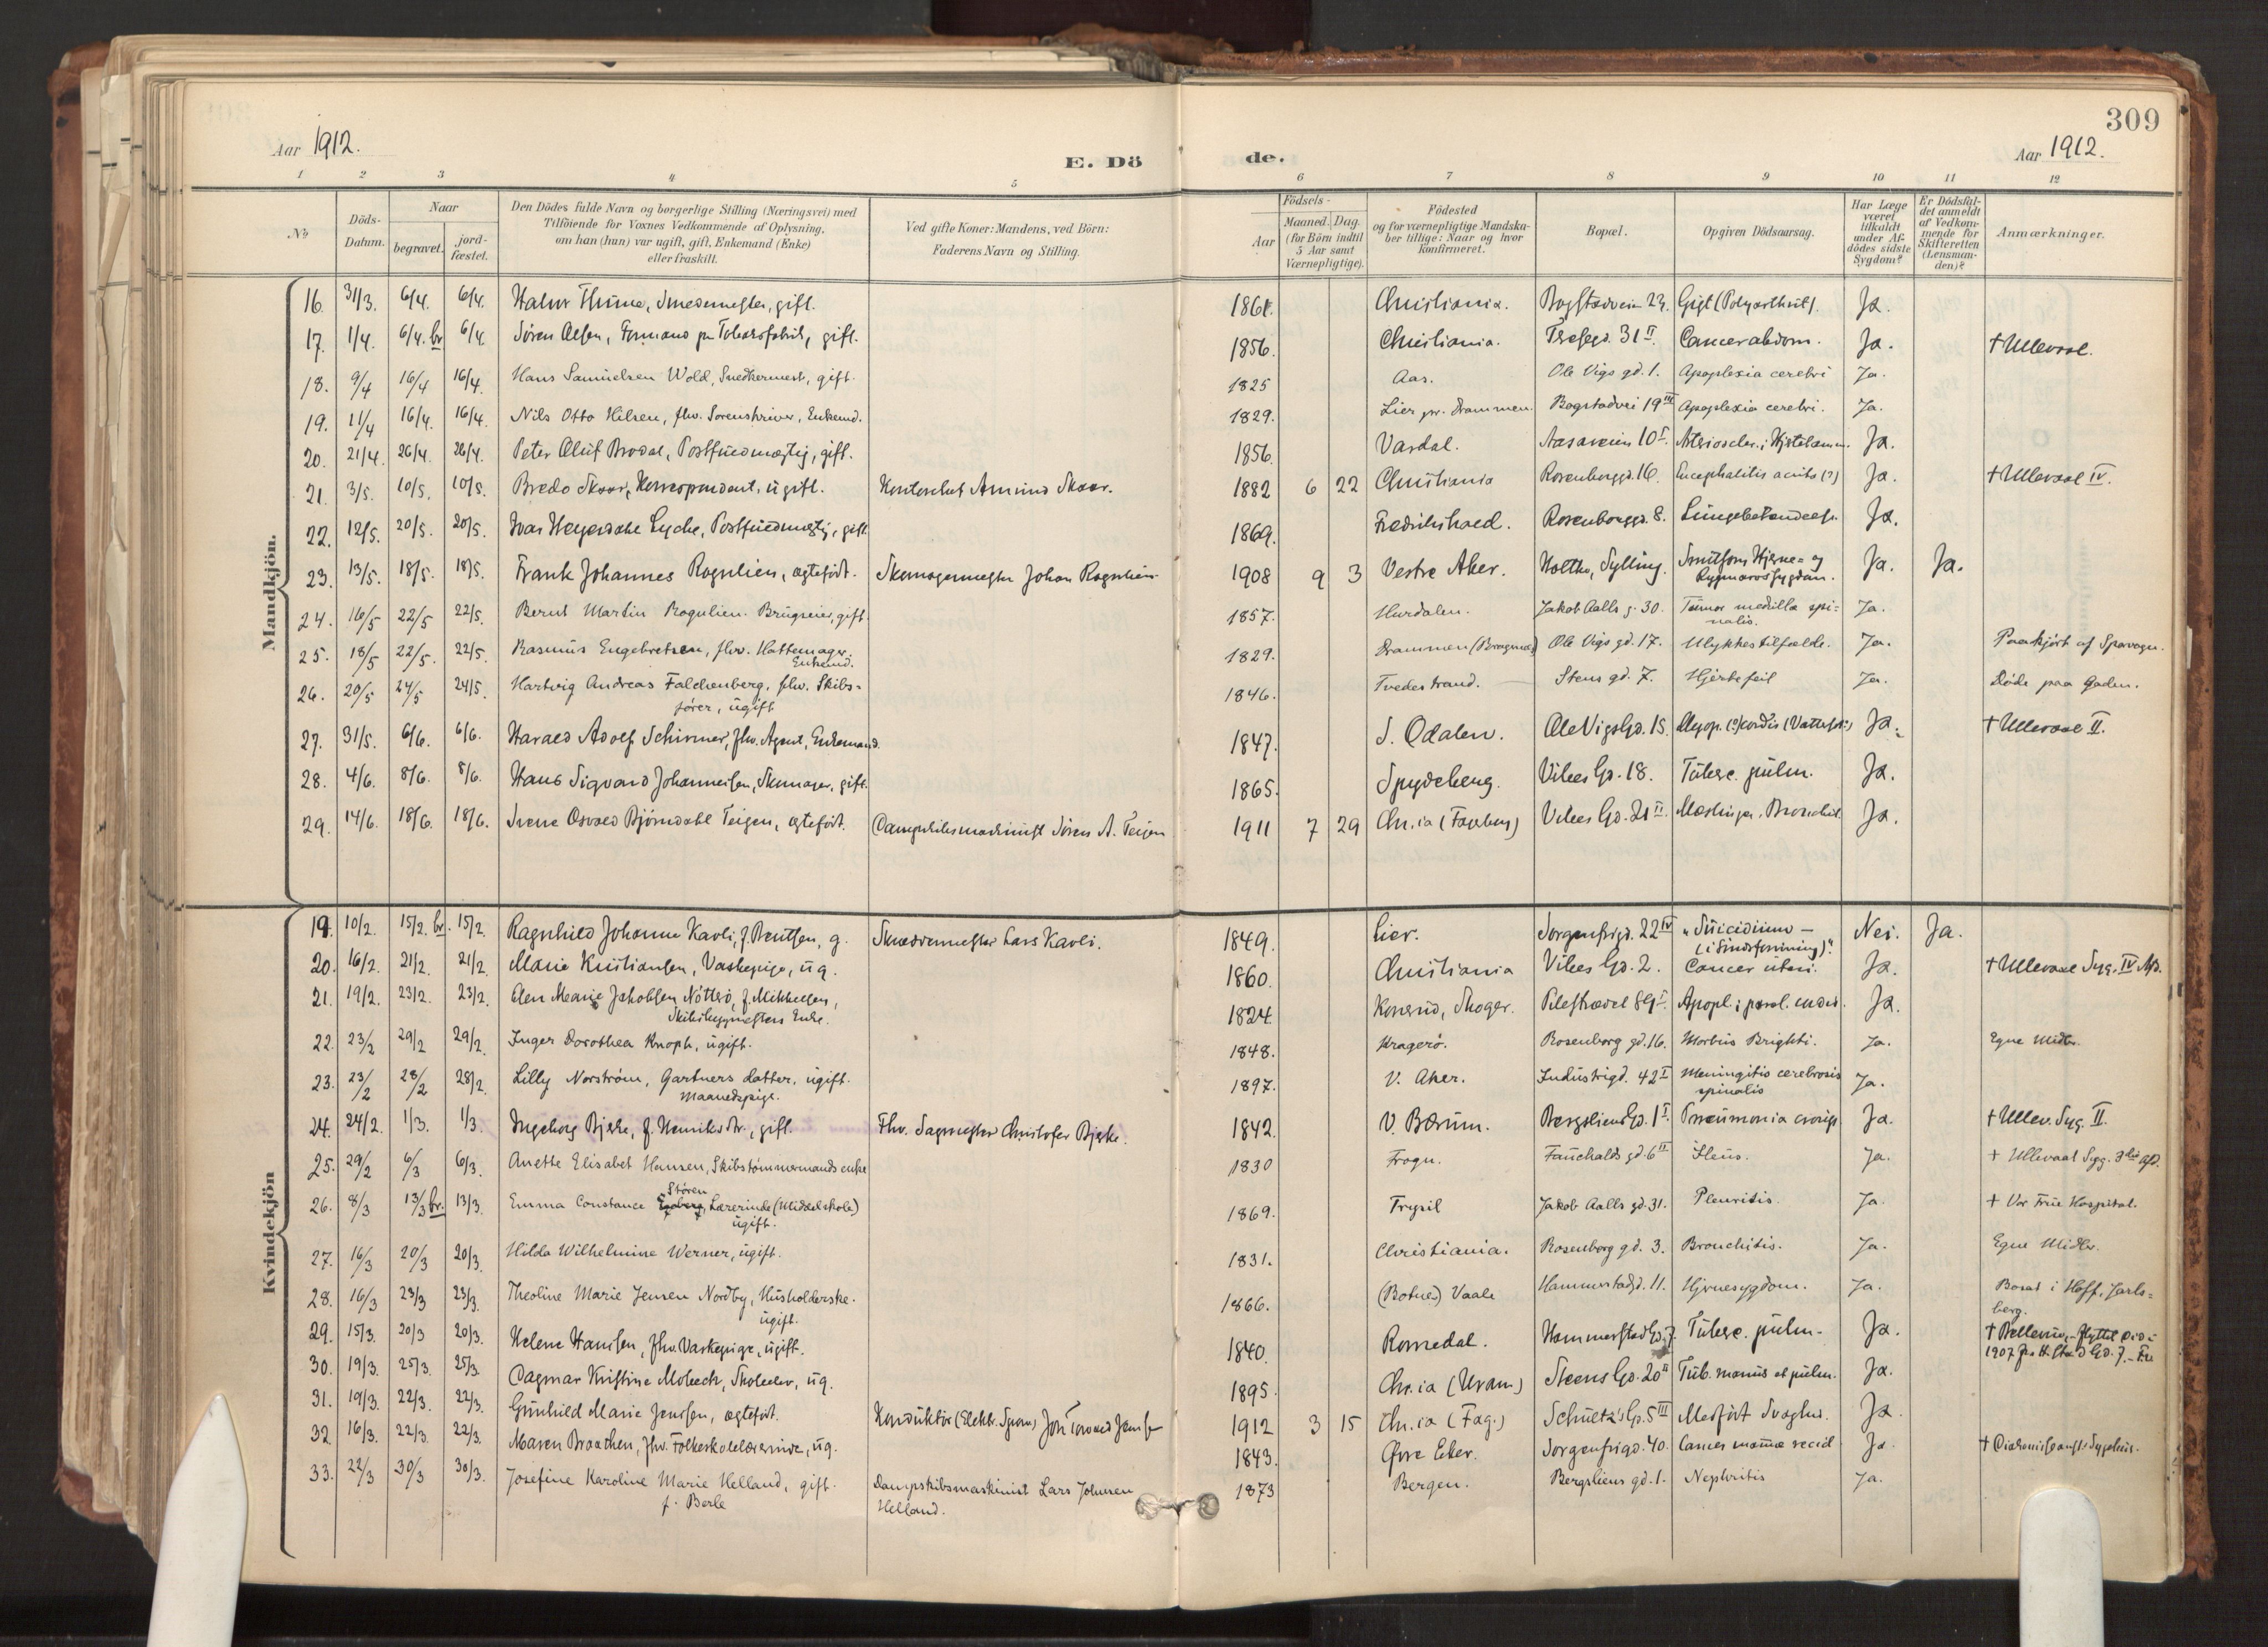 309
Aar 1912.
E. Dö de.
Aar 1912.
1 2 3 4 5 6 7 8 9 10 11 12
No
Döds-Datum.
Naar
begravet.
jord-fæstet.
Den Dödes fulde Navn og borgerlige Stilling (Næringsvei) med
Tilföiende for Voxnes Vedkommende af Oplysning,
om han (hun) var ugift, gift, Enkemand (Enke)
eller fraskilt.
Ved gifte Koner: Mandens, ved Börn:
Faderens Navn og Stilling.
Födsels-
Aar
Maaned. Dag.
(for Börn indtil
5 Aar samt
Værnepligtige).
Födested
og for værnepligtige Mandska-
ber tillige: Naar og hvor
konfirmeret.
Bopæl.
Opgiven Dödsaarsag.
Har Læge
været
tilkaldt
under Af-
dödes sidste
Sygdom?
Er Dödsfal-
det anmeldt
af Vedkom-
mende for
Skifteretten
(Lensman-
den)?
Anmærkninger.
Mandkjön.
16. 31/3. 6/4. 6/4. Halvor Thune, Smedmester, gift. 1861. Christiania. Bogstadvein 23. Gigt (Polyarthrit). Ja.
17. 1/4. 6/4. br 6/4. Sören Olsen, Formand paa Tobaksfabrik, gift. 1856. Christiania. 31 II. Cancer abdom. Ja. † Ullevaal.
18. 9/4 16/4 16/4. Hans Samuelsen Wold, Snedkermest., gift. 1825 Aas. Ole Vigs gd. 1. Apoplexia cerebri Ja.
19. 11/4 16/4. 16/4. Nils Otto Hilsen, fhv. Sorenskriver, Enkemd. 1829. Lier pr. Drammen. Bogstadvei 19 III Apoplexia cerebri. Ja.
20. 21/4. 26/4. 26/4. Peter Oluf Brodal, Postfuldmægtig, gift. 1856. Vardal. Aasaveien 10 I. Arterioscler.; Ja.
21. 3/5. 10/5. 10/5. Bredo Skaar, Korrespondent, ugift. Kontorchef Amund Skaar. 1882 6 22 Christiania Rosenborggd. 16. Encephalitis acuta (?) Ja. † Ullevaal IV.
22. 12/5. 20/5. 20/5. Ivar Heyerdahl Lyche, Postfuldmægtig, gift. 1869. Fredrikshald. Rosenborggd. 8. Lungebetændelse. Ja.
23. 13/5. 18/5. 18/5. Frank Johannes Rognlien, ægtefödt. Skomagermester Johan Rognlien. 1908 9 3 Vestre Aker. Holtho, Sylling. Smitsom Hjerne- og
Rygmarvssygdom. Ja. Ja.
24. 16/5 22/5 22/5. Bernt Martin Rognlien. Brugseier, gift. 1857. Hurdalen. Jakob Aalls g. 30. Tumor medulla spi-
nalis. Ja.
25. 18/5 22/5. 22/5. Rasmus Engebretsen, fhv. Hattemager.
Enkemd. 1829. Drammen (Bragenes) Ole Vigs gd. 17. Ulykkestilfælde. Ja. Paakjört af Sporvogn.
26. 20/5 24/5 24/5. Hartvig Andreas Falchenberg, fhv. Skibs-
förer, ugift 1846. Tvedestrand. Stens gd. 7. Hjertefeil Ja. Döde paa Gaden.
27. 31/5. 6/6. 6/6. Harald Adolf Schirmer, fhv. Agent, Enkemand. 1847. S. Odalen. Ole Vigs Gd. 15. Ja. † Ullevaal II.
28. 4/6. 8/6. 8/6. Hans Sigvard Johannessen, Skomager, gift. 1865. Spydeberg. Vibes Gd. 18. Tuberc. pulm. Ja.
29. 14/6. 18/6. 18/6. Osvald Björndahl Teigen, ægtefödt. Dampskibsmaskinist Sören A. Teigen 1911 7 29 Chr.ia (Fagerborg) Vibes Gd. 21 II. Meslinger. Bronchit. Ja.
Kvindekjön
19. 10/2. 15/2. br. 15/2. Ragnhild Johanne Kavli, f. Berntsen, g. Lars Kavli. 1849. Lier. Sorgenfrigd. 22 IV "Suicidium —
(i Sindsforvirring)". Nei. Ja.
20. 16/2. 21/2. 21/2. Marie Kristiansen, Vaskepige, ug. 1860. Christiania Vibes Gd. 2. Cancer uteri. Ja. † Ullevaal Syg. IV Afd.
21. 19/2. 23/2. 23/2. Elen Marie Jakobsen Nötterö, f. Mikkelsen,
Enke. 1824. Konerud, Skoger. Pilestrædet 89 I. Apopl.; paral. cordis. Ja.
22. 23/2 29/2 29/2. Inger Dorothea Knoph, ugift. 1848. Kragerö. Rosenborg gd. 16. Morbus Brighti. Ja. Egne Midler.
23. 23/2 28/2 28/2. Lilly Norström, Gartners Datter, ugift.
Maanedspige. 1897. V. Aker. Industrigd. 42 I Meningitis cerebrosis
spinalis Ja.
24. 24/2. 1/3. 1/3. Ingeborg Bjerke, f. Henriksdtr., gift. Fhv. Sagmester Christofer Bjerke. 1842. V. Bærum. Bergsliens Gd. 1 I. Pneumonia Ja. † Ullev. Syg. II.
25. 29/2 6/3 6/3. Anette Elisabet Hansen, Skibstömmermands enke 1830 Frogn. Fauchalds gd. 6 II Ileus. Ja. † Ullevaal Syg. 3die afd.
26. 8/3 13/3 br. 13/3. Emma Constance Stören, Lærerinde (Middelskole)
ugift. 1869. Trysil Jakob Aalls gd. 31. Pleuritis. Ja. † Vor Frue Hospital.
27. 16/3 20/3 20/3. Hilda Wilhelmine Werner, ugift. 1831. Christiania. Rosenborg gd. 3. Bronchitis. Ja. Egne Midler.
28. 16/3 23/3 23/3. Theoline Marie Jensen Nordby, Husholderske.
ugift. 1866. (Botne) Vaale Hammerstadgd. 11. Hjernesygdom. Ja. Bosat i Hoff, Jarls-
berg.
29. 15/3. 20/3 20/3. Helene Hansen, fhv. Vaskepige, ugift. 1840. Romedal. Hammerstad Gd. 7. Tuberc. pulm. Ja. † Bellevue,
30. 19/3. 25/3. 25/3. Dagmar Kristine Skoleelev, ug. 1895. Chr.ia (Uran.) Steens Gd. 20 II Tub. manus et pulm. Ja.
31. 19/3. 22/3. 22/3. Gunhild Marie Jensen, ægtefödt. Konduktör (Elektr. Sporv.) Jensen 1912 3 15 Chr.ia (Fag.) Schultz's Gd. 5 III Medfödt Svaghed. Ja
32. 16/3. 22/3. 22/3. Maren Braathen, fhv. Folkeskolelærerinde, ug. 1843. Övre Eker. Sorgenfrigd. 40. Cancer mamma recid. Ja. † Diakonisseanst. Sygehus.
33. 22/3 30/3 30/3. Josefine Karoline Marie Helland, gift.
f. Berle Dampskibsmaskinist Lars Johnsen
Helland. 1873 Bergen. Bergsliens gd. 1. Nephritis Ja.